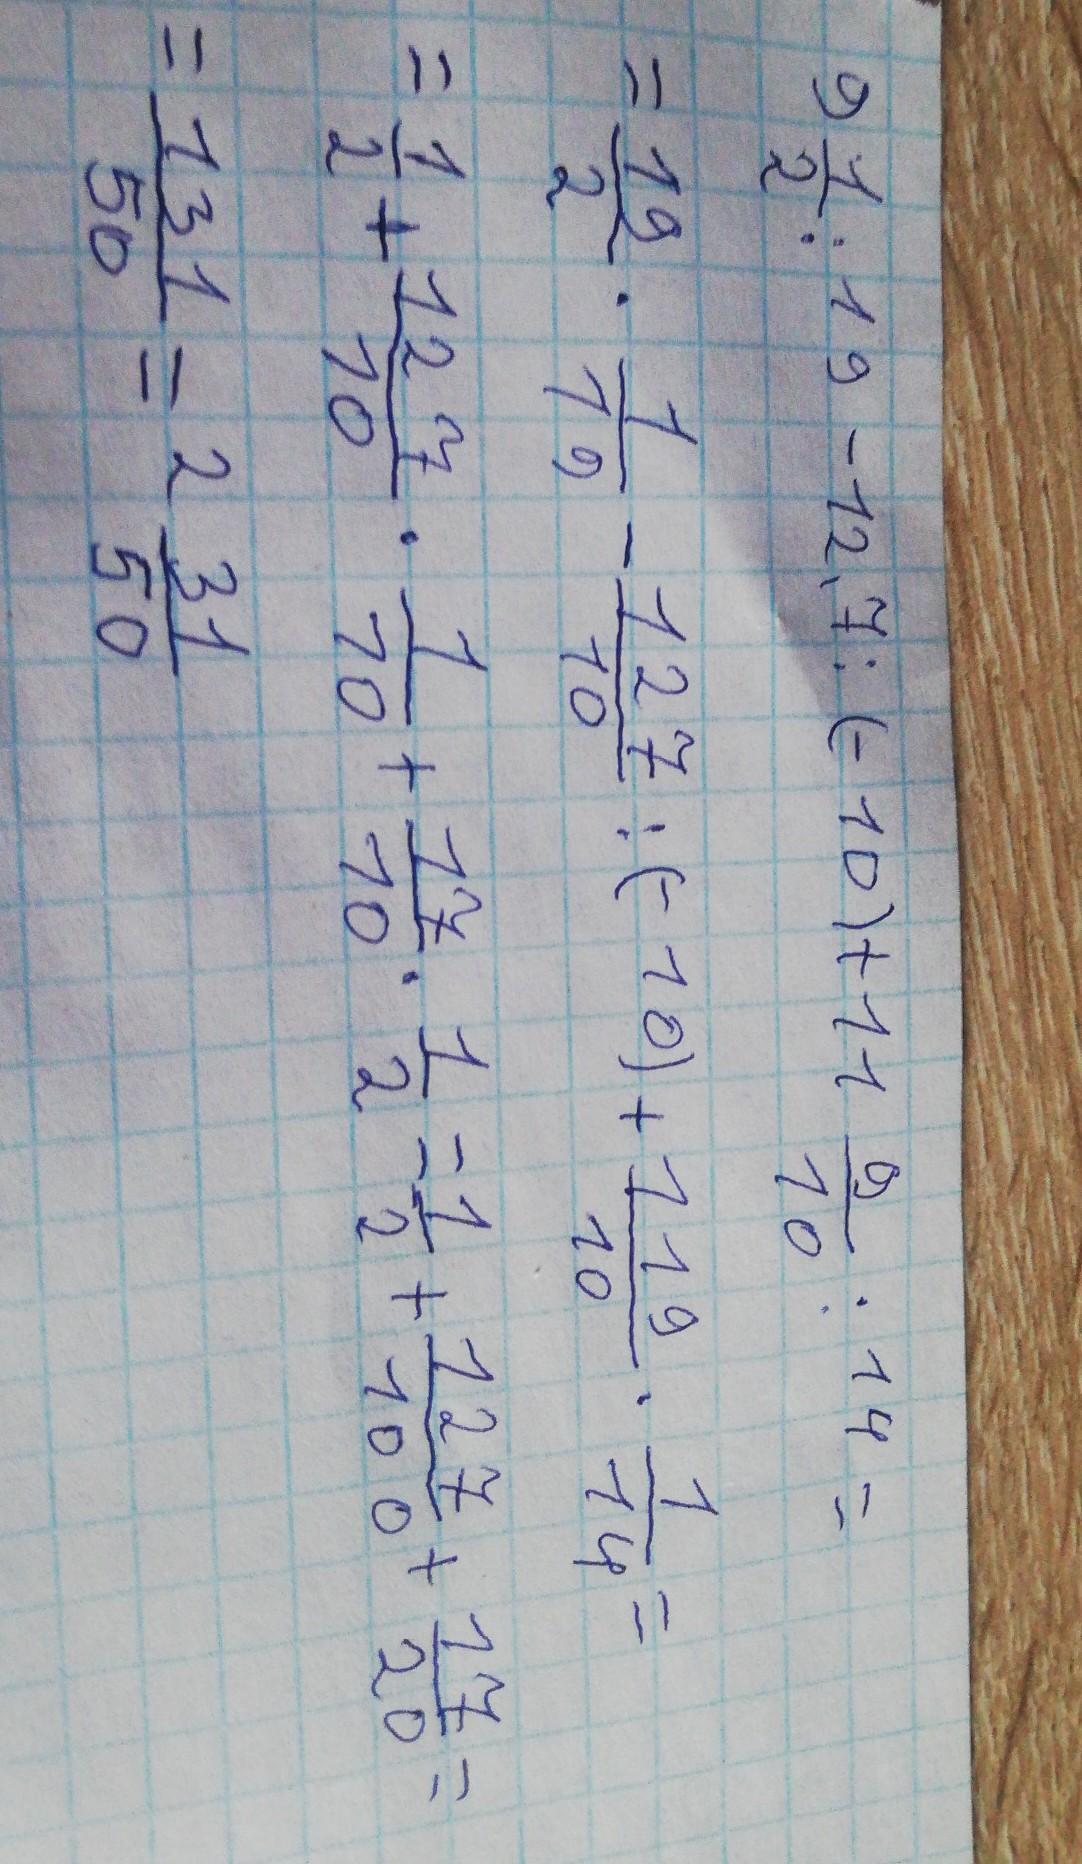 9 1/2 : 19 - 12,7 : (-10) + 11 9/10 : 14 =
= 19/2 · 1/19 - 127/10 : (-10) + 119/10 · 1/14 =
= 1/2 + 127/10 · 1/10 + 17/10 · 1/2 = 1/2 + 127/100 + 17/20 =
= 131/50 = 2 31/50